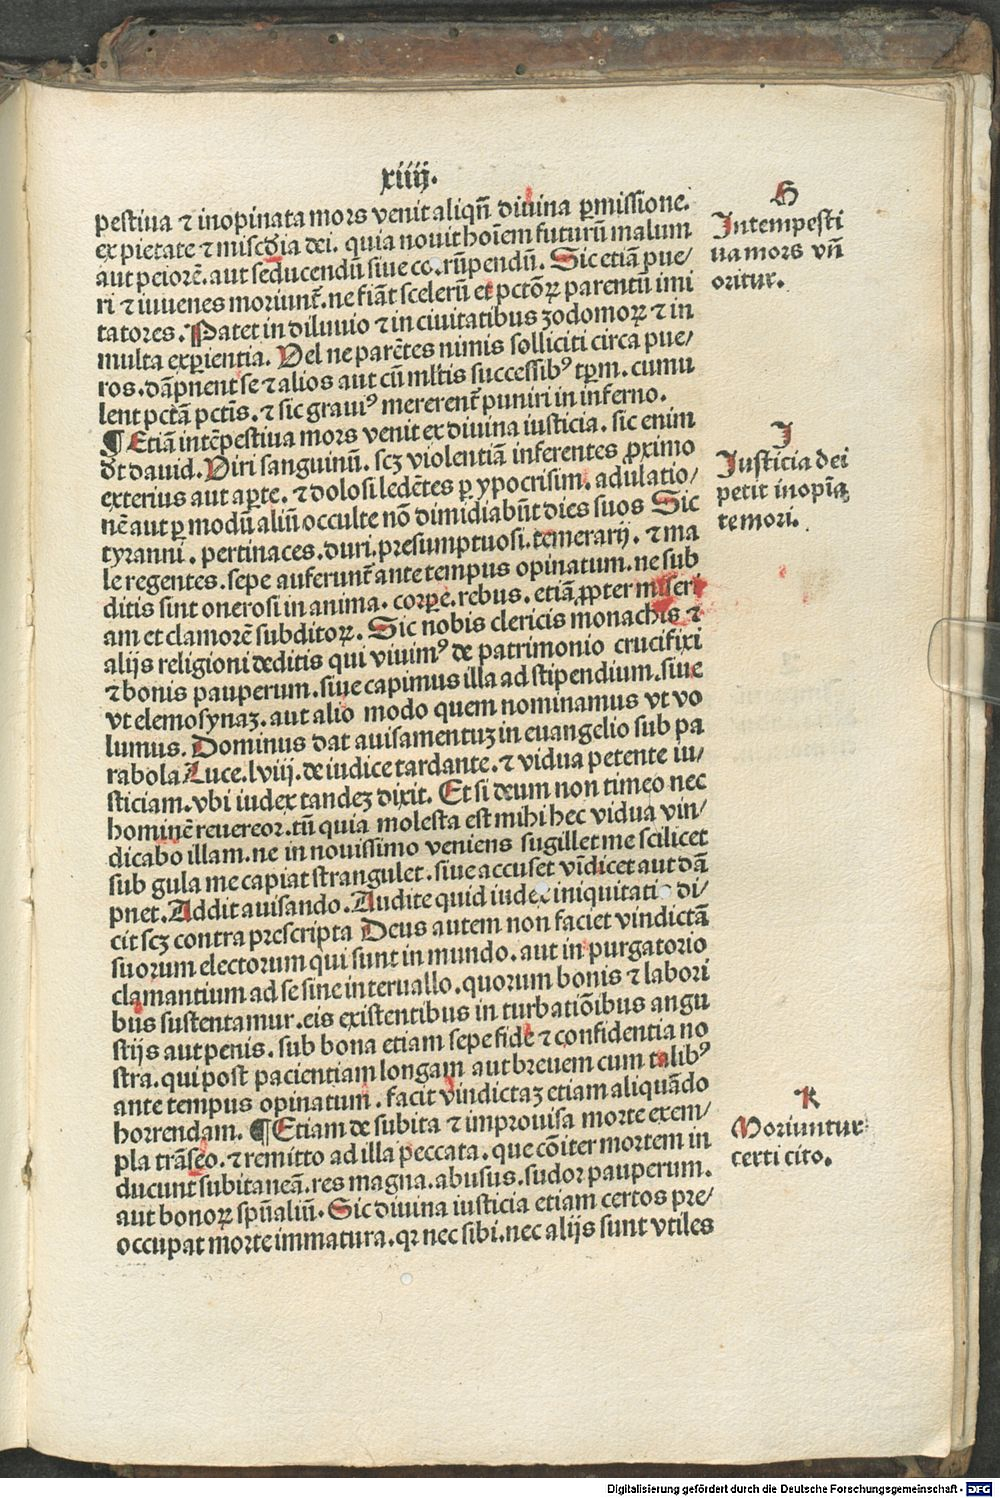 xiiij.
pestiua ⁊ inopinata mors venit aliqñ diuina ꝑmissione.
ex pietate ⁊ miscďia dei. quia nouit hoīem futurū malum
aut peiorē. aut seducendū siue co rūpendū. Sic etiā pue/
ri ⁊ iuuenes moriunt̄. ne fiāt scelerū et pctōꝝ parentū imi
tatores. Patet in diluuio ⁊ in ciuitatibus zodomoꝝ ⁊ in
multa exꝑientia. Vel ne parētes nimis solliciti circa pue/
ros. dāpnent se ⁊ alios aut cū mltis successibꝰ tꝑm. cumu
lent pctā pctīs. ⁊ sic grauiꝰ mererent̄ puniri in inferno.
¶ Etiā intēpestiua mors venit ex diuina iusticia. sic enim
dt dauid. Viri sanguinū. scꝫ violentiā inferentes ꝓximo
exterius aut aꝑte. ⁊ dolosi ledētes ꝑ ypocrisim. adulatio/
nē aut ꝑ modū aliū occulte nō dimidiabūt dies suos Sic
tyranni. pertinaces. duri. presumptuosi. temerarij. ⁊ ma
le regentes. sepe auferunt̄ ante tempus opinatum. ne sub
ditis sint onerosi in anima. corꝑe. rebus. etiā ꝓpter miseri
am et clamorē subditoꝝ. Sic nobis clericis monachis ⁊
alijs religioni deditis qui viuimꝰ de patrimonio crucifixi
⁊ bonis pauperum. siue capimus illa ad stipendium. siue
vt elemosynaꝫ. aut alio modo quem nominamus vt vo
lumus. Dominus dat auisamentuꝫ in euangelio sub pa
rabola Luce. lviij. de iudice tardante. ⁊ vidua petente iu/
sticiam. vbi iudex tandeꝫ dixit. Et si deum non timeo nec
hominē reuereor. tū quia molesta est mihi hec vidua vin/
dicabo illam. ne in nouissimo veniens sugillet me scilicet
sub gula me capiat strangulet. siue accuset vīdicet aut dā
pnet. Addit auisando. Audite quid iudex iniquitatis di/
cit scꝫ contra prescripta Deus autem non faciet vindictā
suorum electorum qui sunt in mundo. aut in purgatorio
clamantium ad se sine interuallo. quorum bonis ⁊ labori
bus sustentamur. eis existentibus in turbatiōibus angu
stijs aut penis. sub bona etiam sepe fide ⁊ confidentia no
stra. qui post pacientiam longam aut breuem cum talibꝰ
ante tempus opinatum. facit vindictaꝫ etiam aliquādo
horrendam. ¶ Etiam de subita ⁊ improuisa morte exem/
pla trāseo. ⁊ remitto ad illa peccata. que cōiter mortem in
ducunt subitaneā. res magna. abusus. sudor pauperum.
aut bonoꝝ spūaliū. Sic diuina iusticia etiam certos pre/
occupat morte immatura. qꝛ nec sibi. nec alijs sunt vtiles
H
Intempesti
ua mors vñ
oritur.
I
Iusticia dei
petit inopīa
te mori.
K
Moriuntur
certi cito.
Digitalisierung gefördert durch die Deutsche Forschungsgemeinschaft - DFG